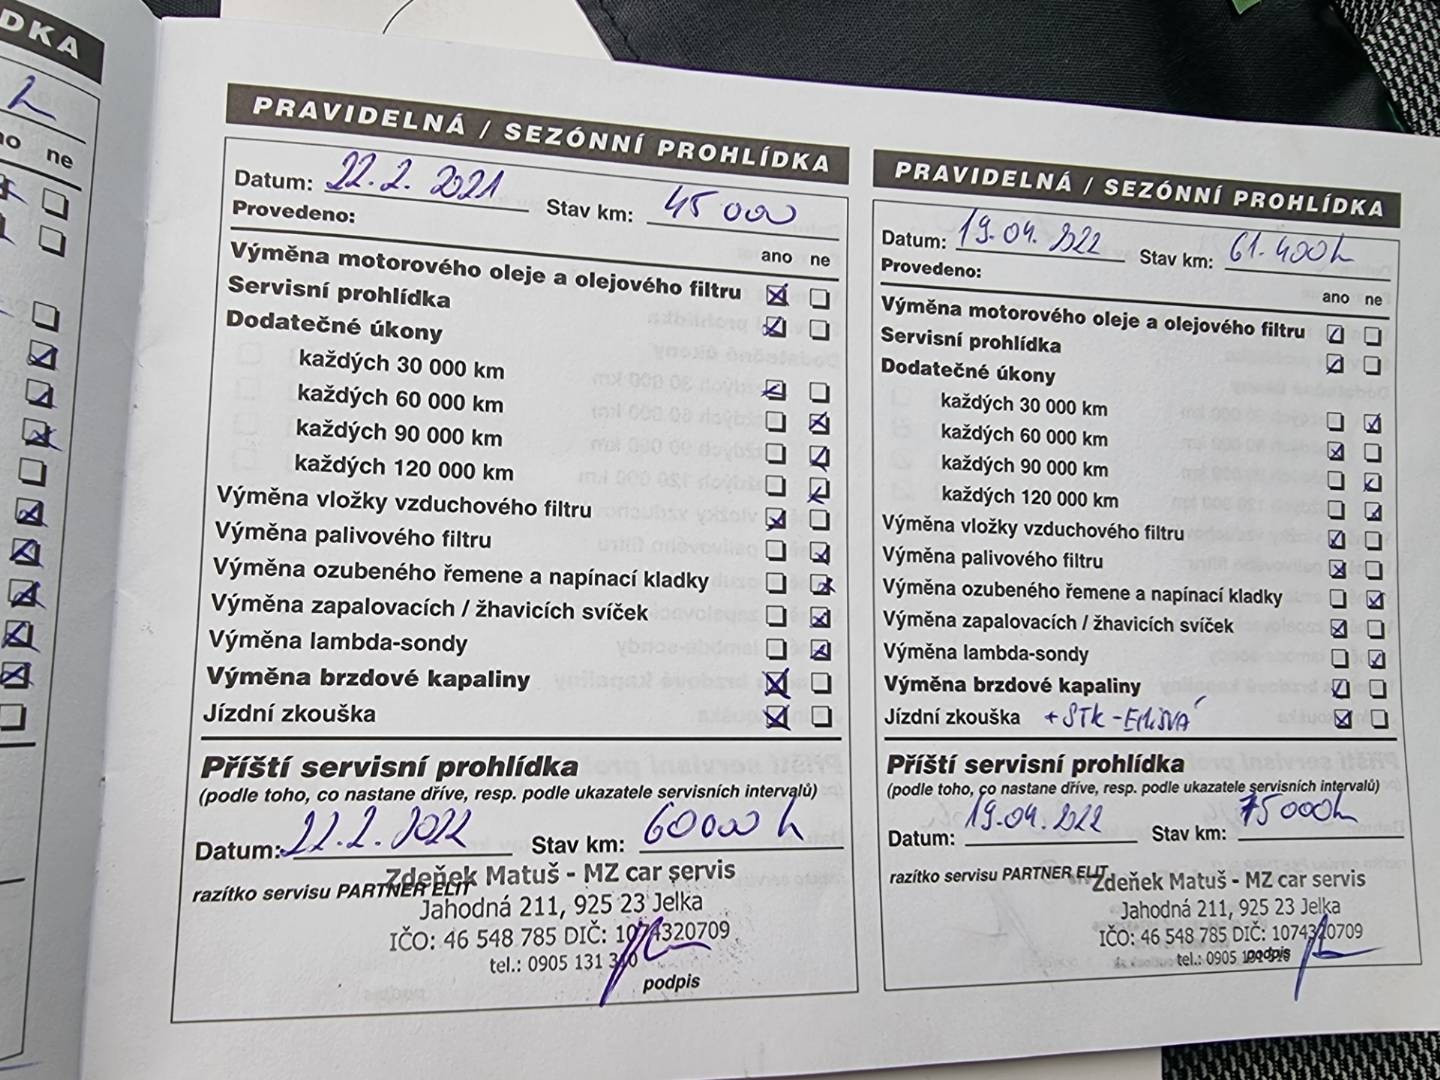 DKA
no ne
PRAVIDELNÁ / SEZÓNNÍ PROHLÍDKA
Datum: 22.2. 2021 Stav km: 45 000
Provedeno:
ano ne
Výměna motorového oleje a olejového filtru
Servisní prohlídka
Dodatečné úkony
každých 30 000 km
každých 60 000 km
každých 90 000 km
každých 120 000 km
Výměna vložky vzduchového filtru
Výměna palivového filtru
Výměna ozubeného řemene a napínací kladky
Výměna zapalovacích / žhavicích svíček
Výměna lambda-sondy
Výměna brzdové kapaliny
Jízdní zkouška
Příští servisní prohlídka
(podle toho, co nastane dříve, resp. podle ukazatele servisních intervalů)
Datum: 22.2. 2022 Stav km: 60000 h
razítko servisu PARTNER ELIT
Zdeňek Matuš - MZ car servis
Jahodná 211, 925 23 Jelka
IČO: 46 548 785 DIČ: 1074320709
tel.: 0905 131
podpis
PRAVIDELNÁ / SEZÓNNÍ PROHLÍDKA
Datum: 19.04. 2022 Stav km: 61.400h
Provedeno:
ano ne
Výměna motorového oleje a olejového filtru
Servisní prohlídka
Dodatečné úkony
každých 30 000 km
každých 60 000 km
každých 90 000 km
každých 120 000 km
Výměna vložky vzduchového filtru
Výměna palivového filtru
Výměna ozubeného řemene a napínací kladky
Výměna zapalovacích / žhavicích svíček
Výměna lambda-sondy
Výměna brzdové kapaliny
Jízdní zkouška +STK-
Příští servisní prohlídka
(podle toho, co nastane dříve, resp. podle ukazatele servisních intervalů)
Datum: 19.04.2022 Stav km: 75000h
razítko servisu PARTNER ELIT
Zdeňek Matuš - MZ car servis
Jahodná 211, 925 23 Jelka
IČO: 46 548 785 DIČ: 1074320709
tel.: 0905
podpis